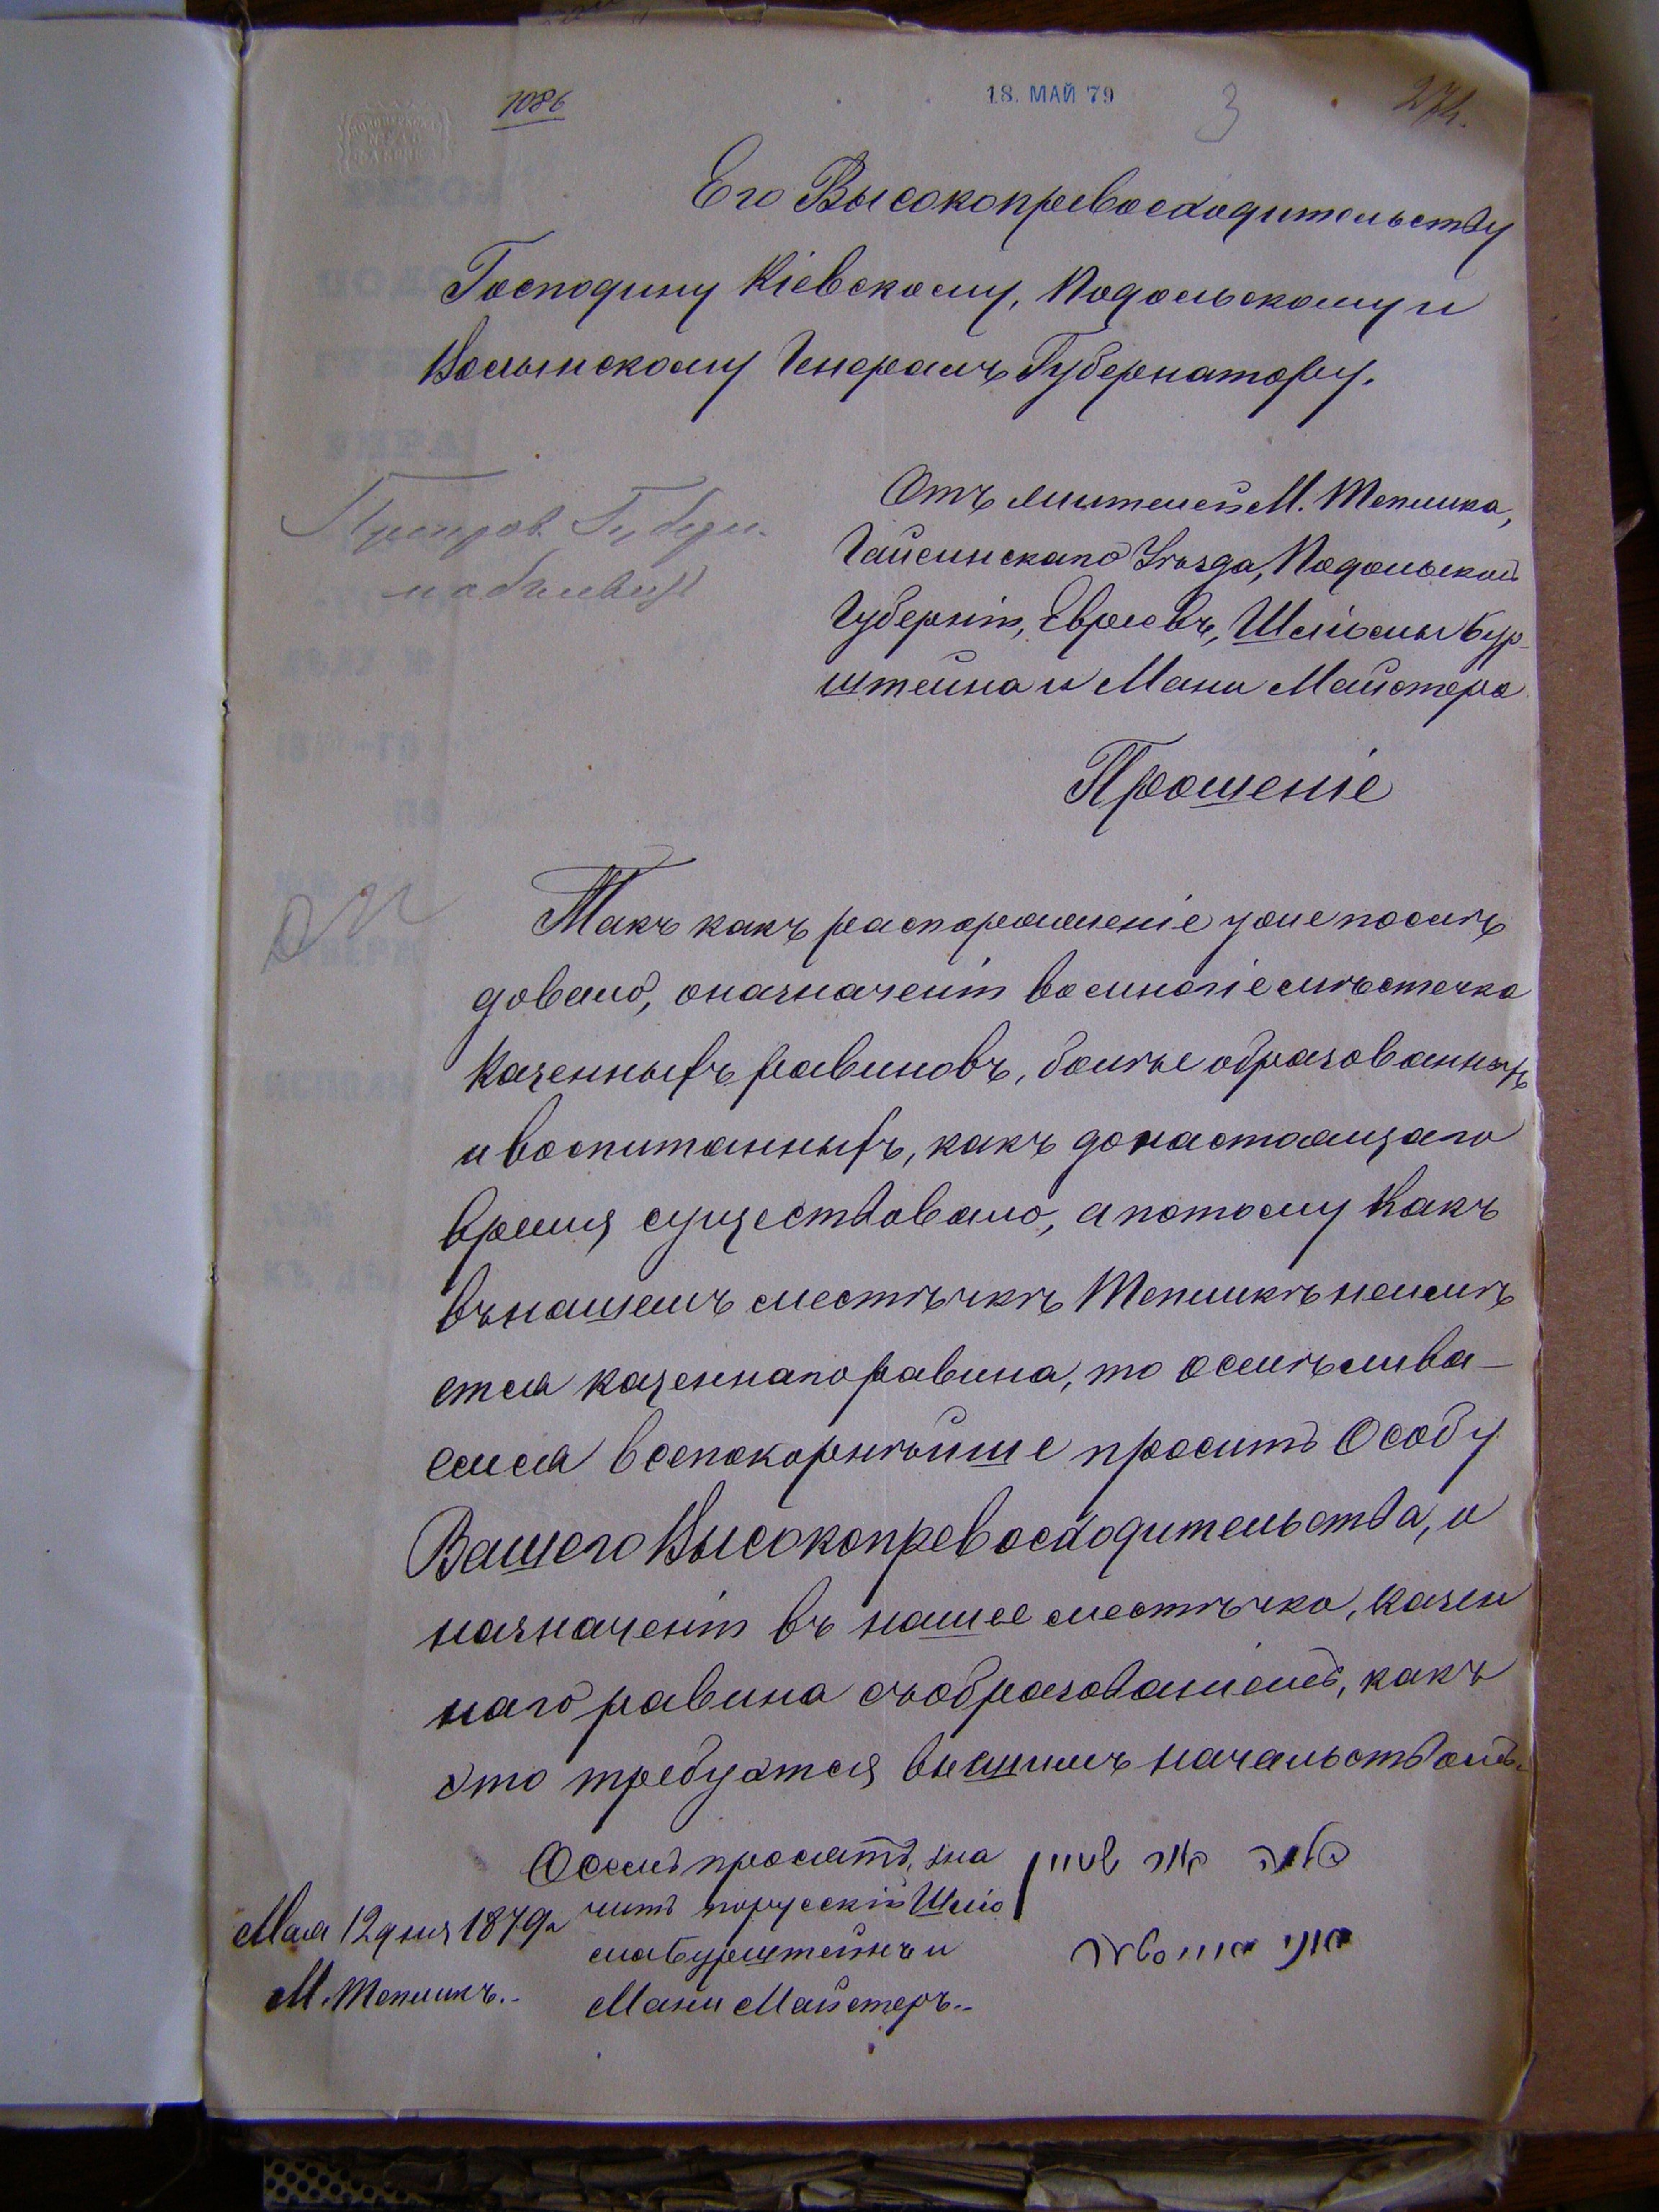 1086
18. МАЙ 79
3
274.
Его Высокопревосходительству
Господину Кіевскому, Подольскому и
Волынскому Генералъ Губернатору.
Отъ жителей М. Теплика,
Гайсинскаго Уѣзда, Подольской
Губерніи, Евреевъ, Шлиомы Бур-
штейна и Мани Майстера
Прошеніе
Такъ какъ распоряженіе уже послѣ
довало, о назначеніи во многіе мѣстечка
Казенныхъ равиновъ, болѣе образованныхъ
и воспитанныхъ, какъ до настоящаго
время существовало, а потому Какъ
въ нашемъ местѣчкѣ Тепликѣ неимѣ
ется казеннаго равина, то осмѣлива-
емся всепокорнѣйше просить Особу
Вашего Высокопревосходительства, и
назначеніи въ нашее местѣчко, казен
наго равина съобразованіемъ, какъ
это требуется высшимъ начальствомъ.
О семъ просятъ, зна
читъ порусскій Шлио
ма Бурштейнъ и
Мани Майстеръ..
שלמה בור שטיין
מאני מייסטער
Мая 12 дня 1879 г
М. Тепликъ..